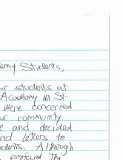 emy Students,
or students at
Academy in St.
were concerned
ur community
e and decided
and letters to
udents. Although